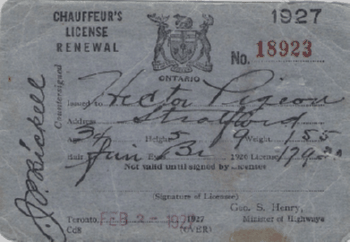 CHAUFFEUR'S
LICENSE
RENEWAL
1927
No. 18923
ONTARIO
Countersigned
J. P. Bickell
Issued to Hector Pigeon
Address Stratford
Age 34 Height 5 9 Weight 155
Hair Eyes 1926 License
Not valid until signed by Licensee
(Signature of Licensee)
Toronto, FEB 2 - 1927
Geo. S. Henry,
Minister of Highways
Cd8 (OVER)